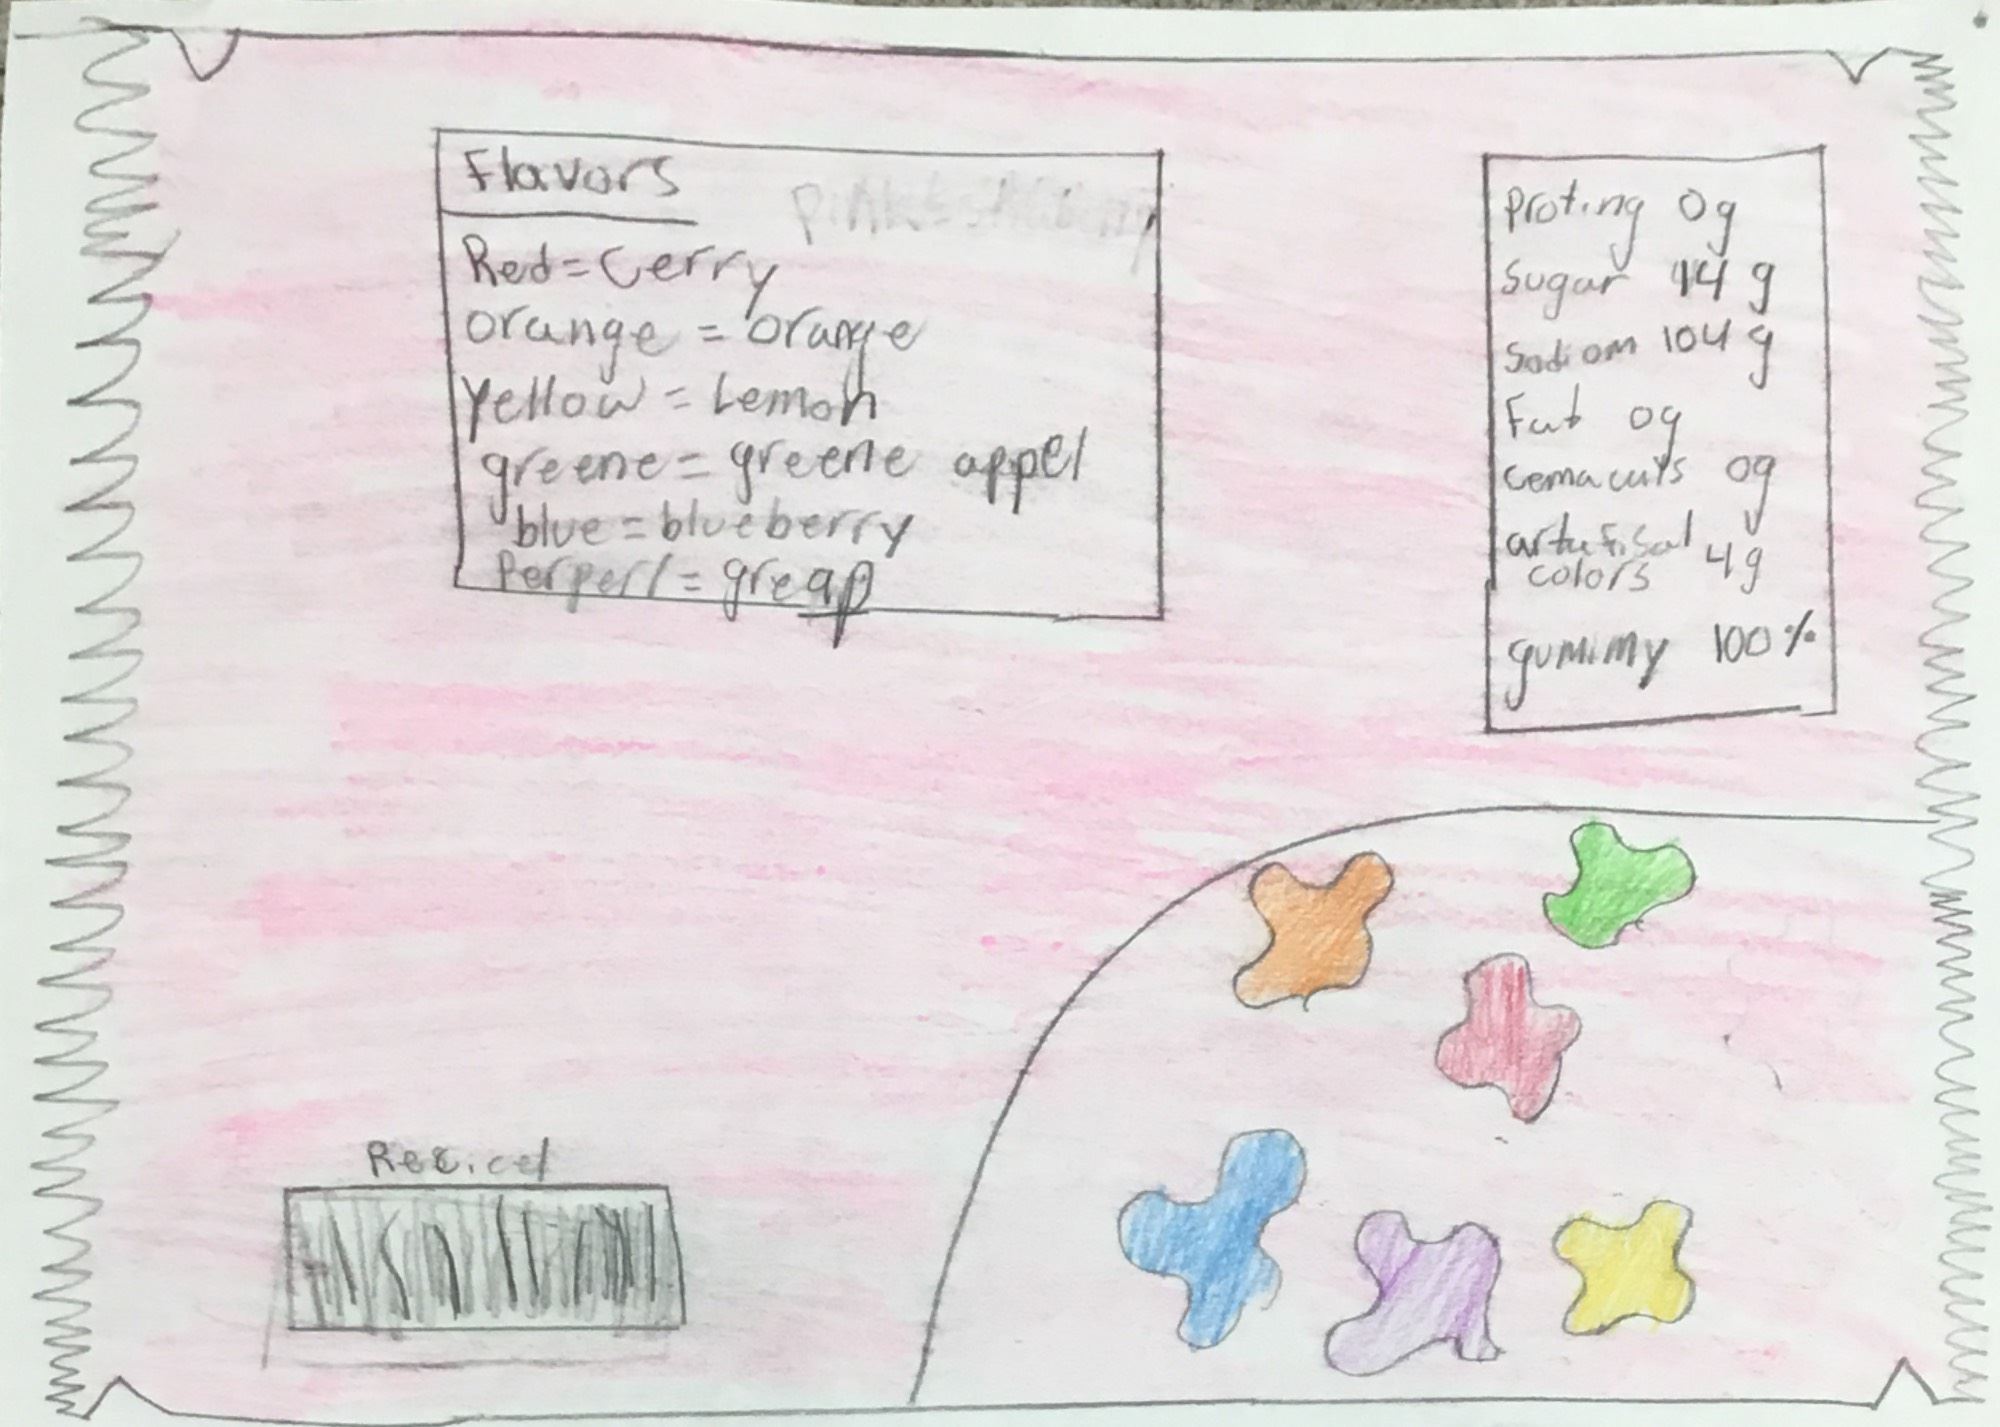 Flavors
Red = Cerry
orange = orange
Yellow = Lemon
greene = greene appel
blue = blueberry
Perperl = greap
Proting 0g
Sugar 14 g
Sodiom 104 g
Fat 0g
cemaculs 0g
artufisal
colors 4g
gumimy 100%